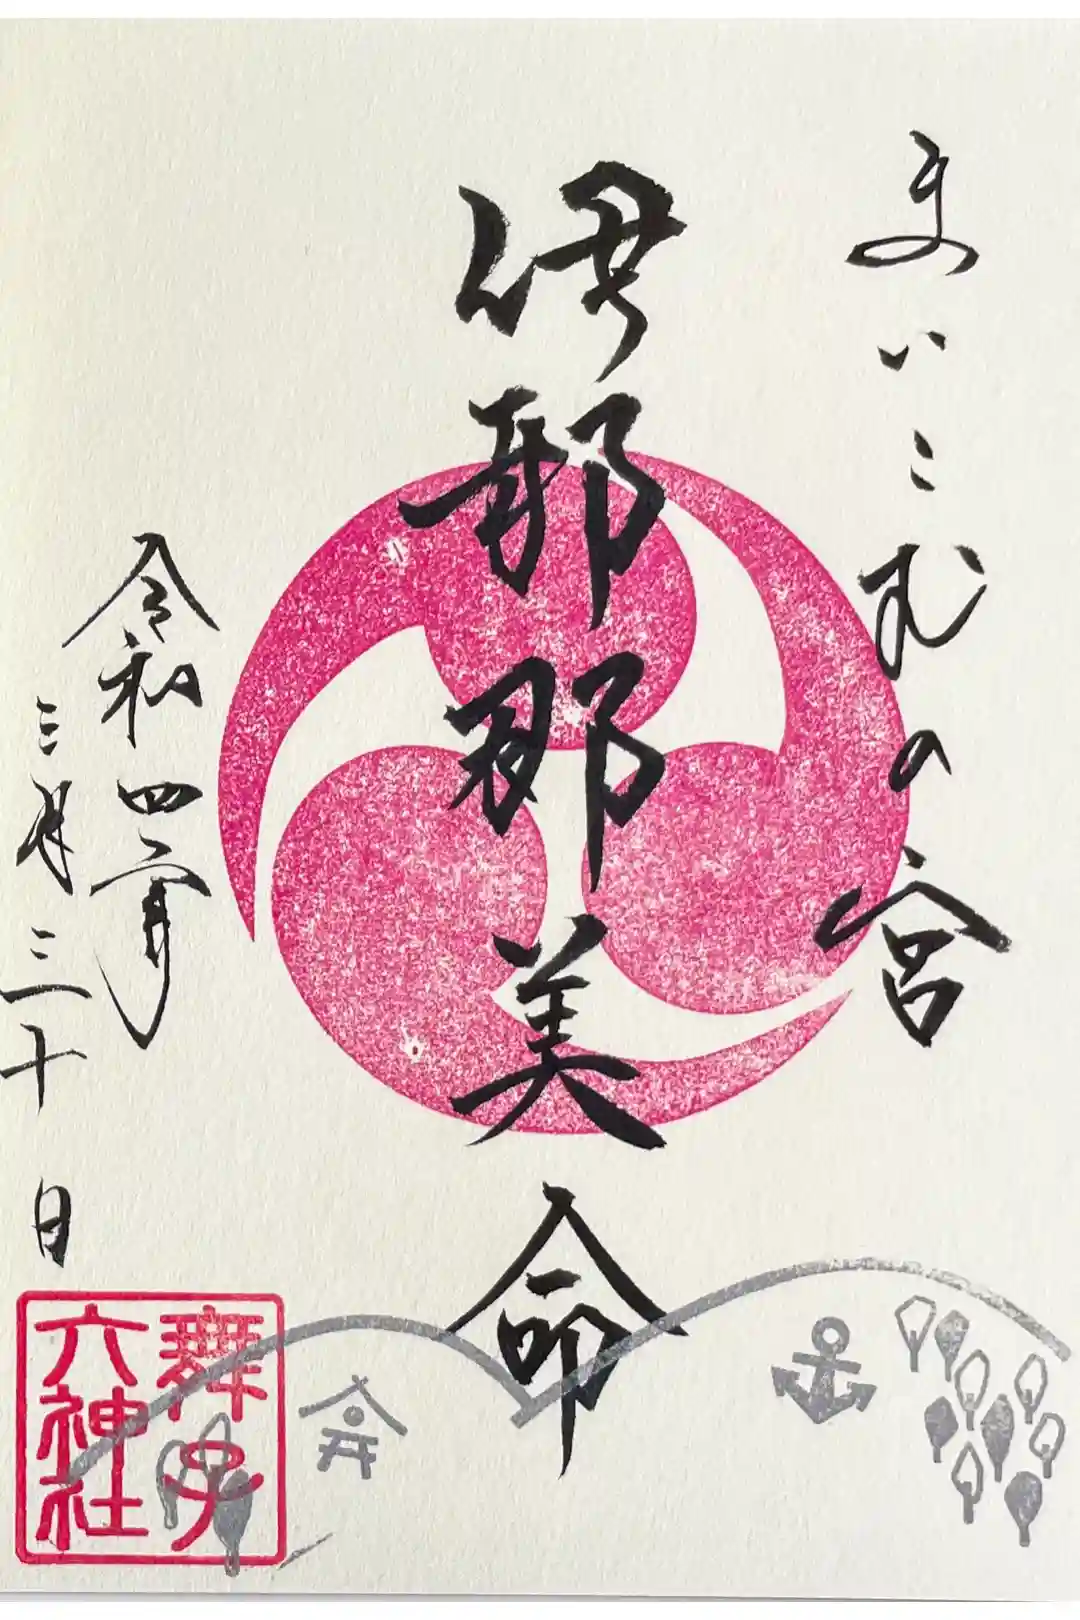 まいこむの宮
伊邪那美命
令和四年
三月三十日
舞子
六神社